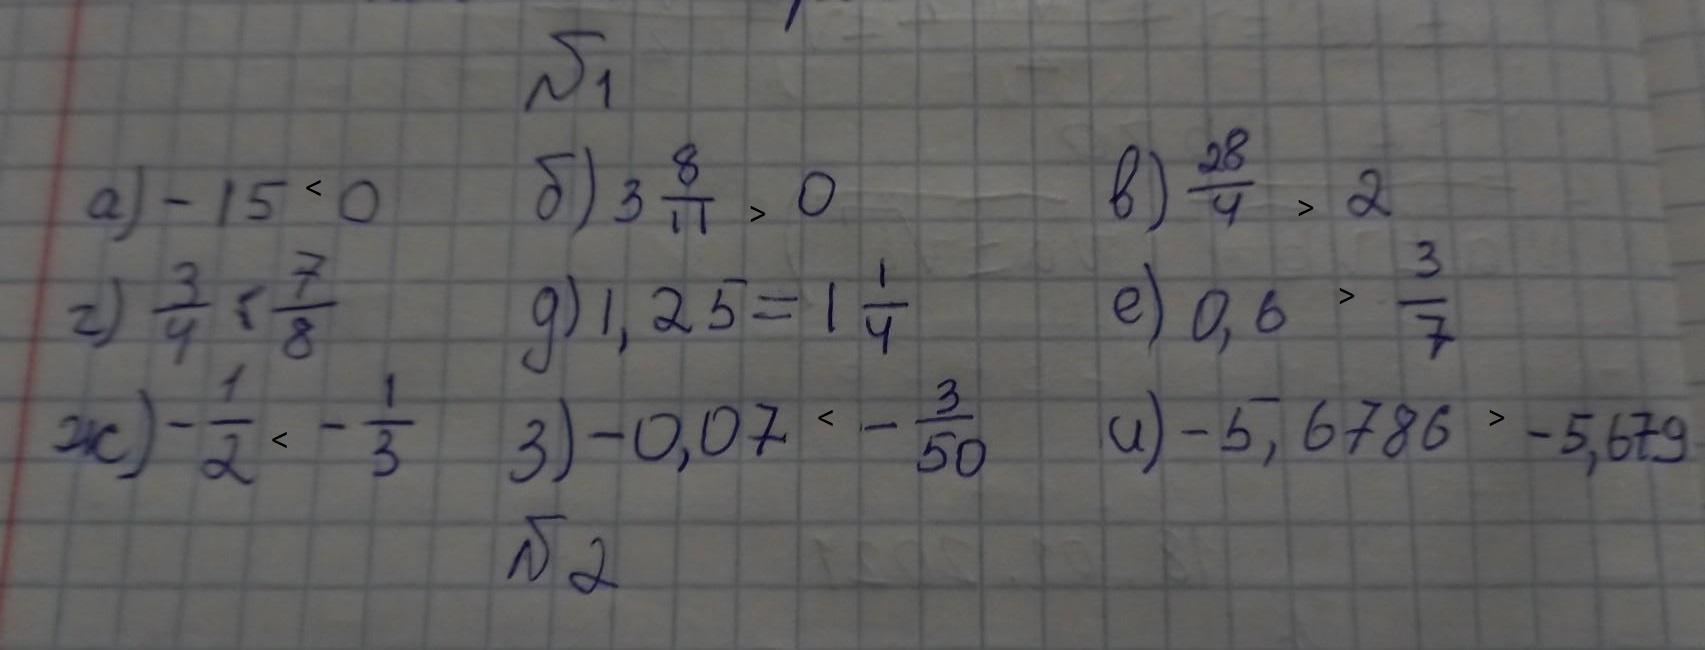 №1
а) -15 < 0 б) 3 8/11 > 0 в) 28/4 > 2
г) 3/4 < 7/8 д) 1,25 = 1 1/4 е) 0,6 > 3/7
ж) -1/2 < -1/3 з) -0,07 < -3/50 и) -5,6786 > -5,679
№2